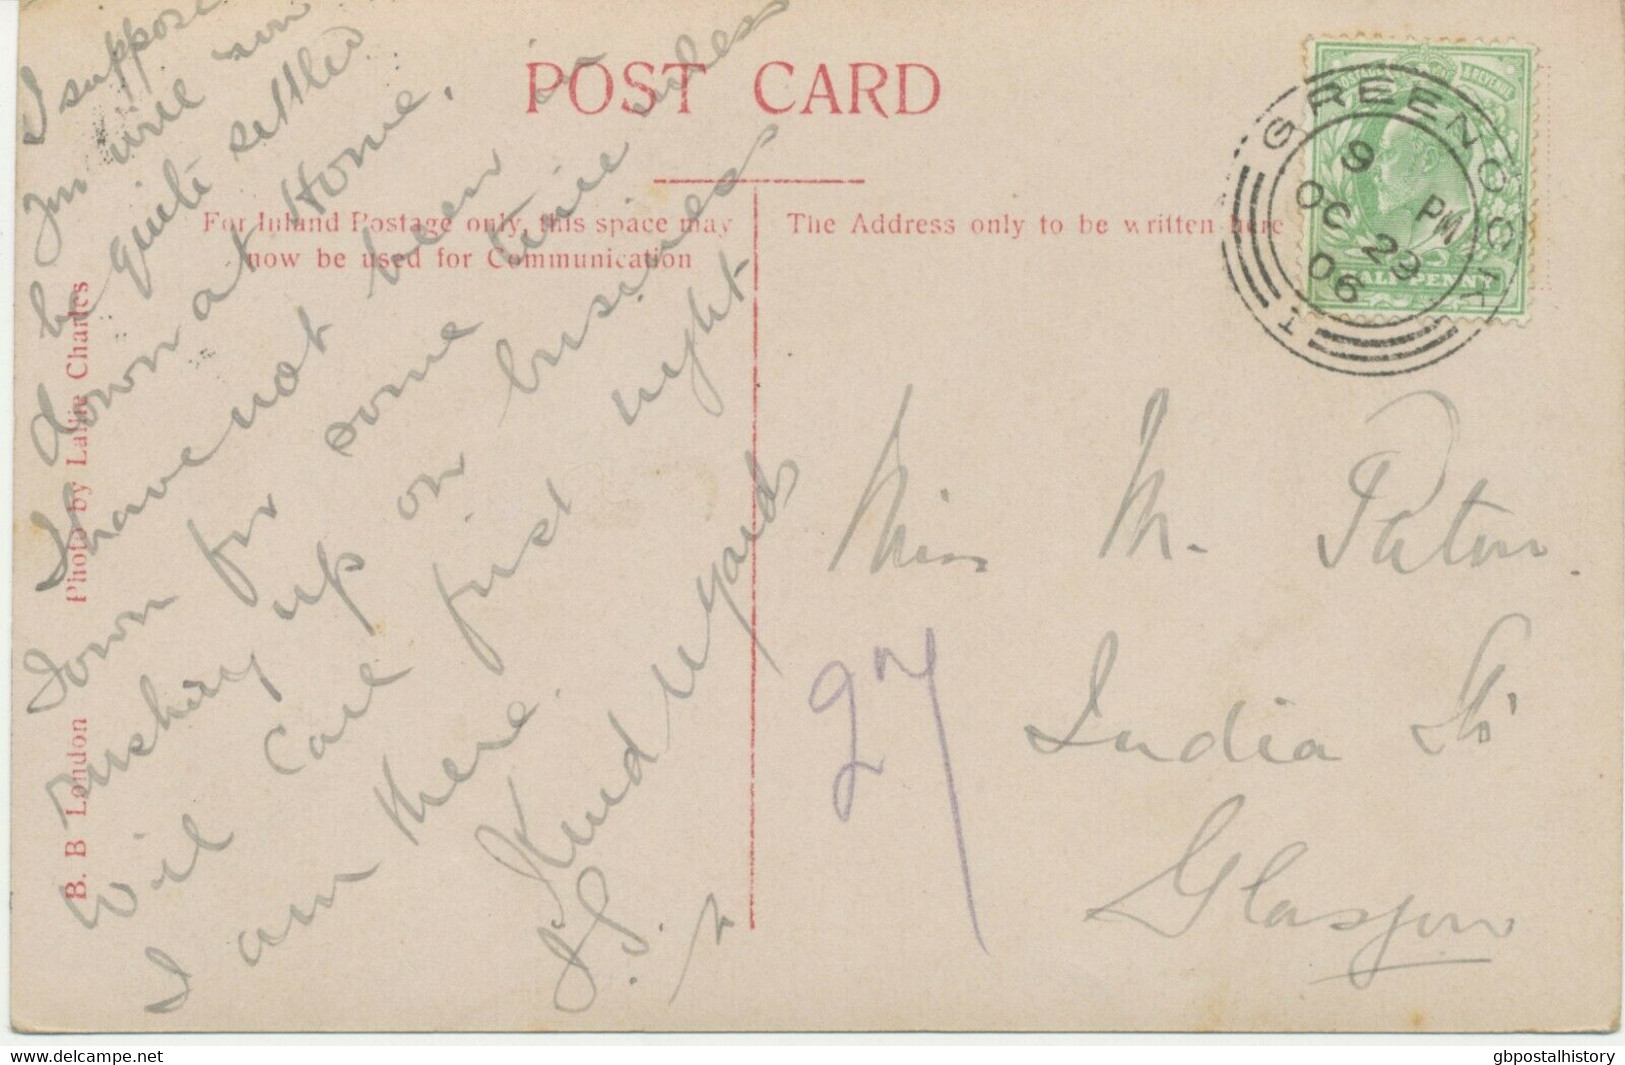 POST CARD
For Inland Postage only, this space may
now be used for Communication
The Address only to be written here
B. B London Photo by Lallie Charles
POSTAGE & REVENUE
HALFPENNY
GREENOCK
9 PM
OC 29
06
1
I suppose
you will soon
be quite settled
down at Home.
I have not been
down for some time unless
rushing up on business
will call first night
I am there.
Kind regards
J. S.
Miss M. Paton.
27
India St
Glasgow
www.delcampe.net
gbpostalhistory